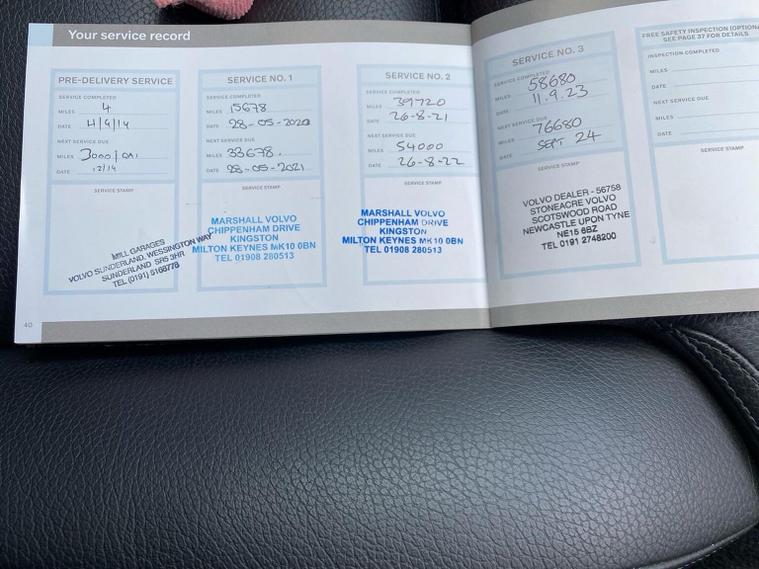 Your service record
PRE-DELIVERY SERVICE
SERVICE COMPLETED
MILES 4
DATE 4/9/14
NEXT SERVICE DUE
MILES
DATE 12/14
SERVICE STAMP
MILL GARAGES
VOLVO SUNDERLAND, WESSINGTON WAY
SUNDERLAND SR5 3HR
TEL (0191) 5168778
SERVICE NO. 1
SERVICE COMPLETED
MILES 15678
DATE 28-05-2020
NEXT SERVICE DUE
MILES 33678.
DATE 28-05-2021
SERVICE STAMP
MARSHALL VOLVO
CHIPPENHAM DRIVE
KINGSTON
MILTON KEYNES MK10 0BN
TEL 01908 280513
SERVICE NO. 2
SERVICE COMPLETED
MILES 39720
DATE 26-8-21
NEXT SERVICE DUE
MILES 54000
DATE 26-8-22
SERVICE STAMP
MARSHALL VOLVO
CHIPPENHAM DRIVE
KINGSTON
MILTON KEYNES MK10 0BN
TEL 01908 280513
SERVICE NO. 3
SERVICE COMPLETED
MILES 58680
DATE 11.9.23
NEXT SERVICE DUE
MILES 76680
DATE SEPT 24
SERVICE STAMP
VOLVO DEALER - 56758
STONEACRE VOLVO
SCOTSWOOD ROAD
NEWCASTLE UPON TYNE
NE15 6BZ
TEL 0191 2748200
FREE SAFETY INSPECTION (OPTIONA
SEE PAGE 37 FOR DETAILS
INSPECTION COMPLETED
MILES
DATE
NEXT SERVICE DUE
MILES
DATE
SERVICE STAMP
40